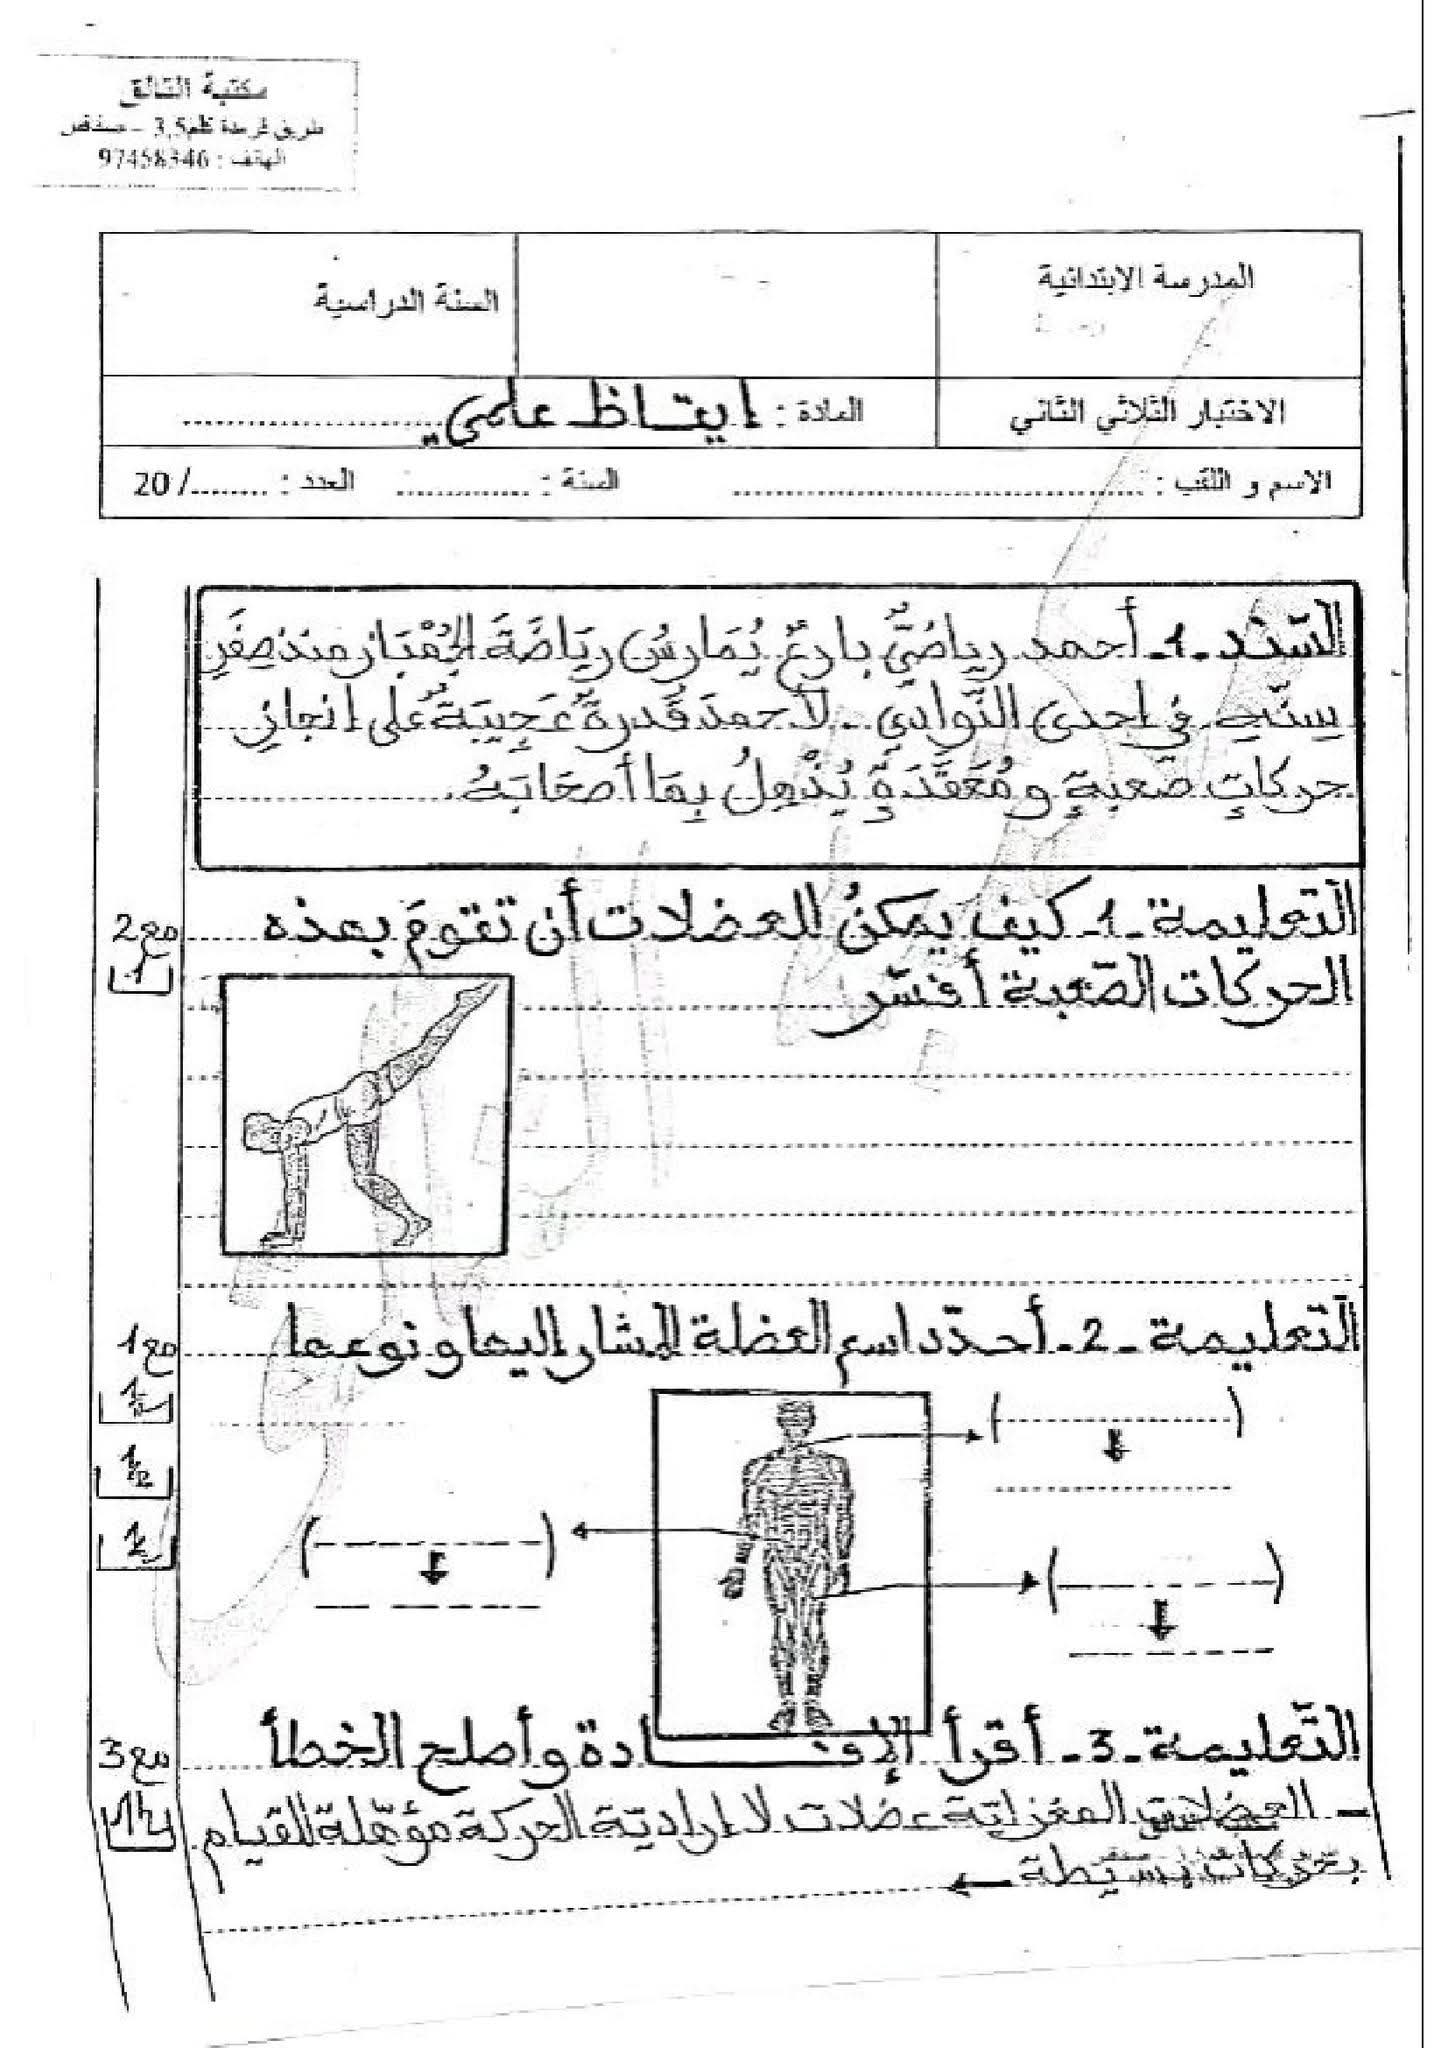 مكتبة التالق
طريق قرمدة كلم3,5 - صفاقس
الهاتف : 97458346
المدرسة الابتدائية
السنة الدراسية
الاختبار الثلاثي الثاني
المادة : ايقاظ علمي
الاسم و اللقب : ........ السنة : ........ العدد : ......../ 20
السّند-1- أحمد رياضيٌّ بارعٌ يُمَارِسُ رِيَاضَةَ الجُمْبَاز منذ صِغَرِ
سِنِّهِ في إحدى النَّوادي . لأحمدَ قُدرةٌ عَجِيبَةٌ على انجازِ
حركاتٍ صعبةٍ و مُعَقَّدَةٍ يُذْهِلُ بِهَا أصحَابَهُ.
التّعليمة -1- كيف يمكنُ للعضلات أن تقومَ بهذه
مع2
1
الحركات الصّعبة أفسّر
التّعليمة -2- أحدّد اسم العضلة المشار إليها و نوعها
مع1
1/2
1/2
1/2
التّعليمة -3- أقرأ الإفـــادة وأصلح الخطأ
مع3
1/2
- العضلات المغزليّة عضلات لا إراديّة الحركة مؤهّلة للقيام
بحركات بسيطة